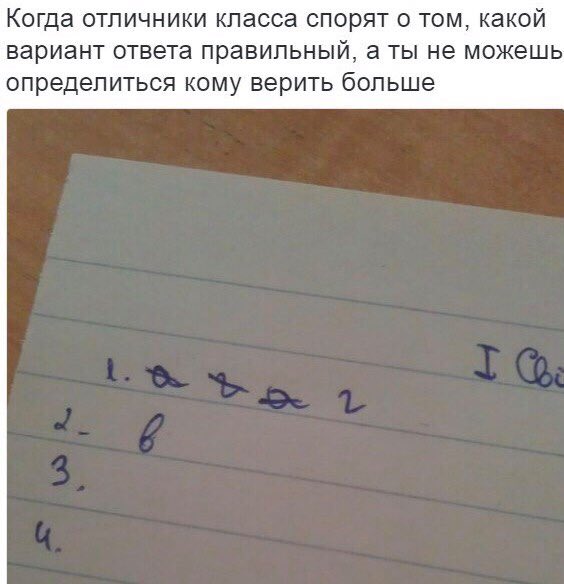 Когда отличники класса спорят о том, какой
вариант ответа правильный, а ты не можешь
определиться кому верить больше
1. а г а г
I Сво
2- в
3.
4.